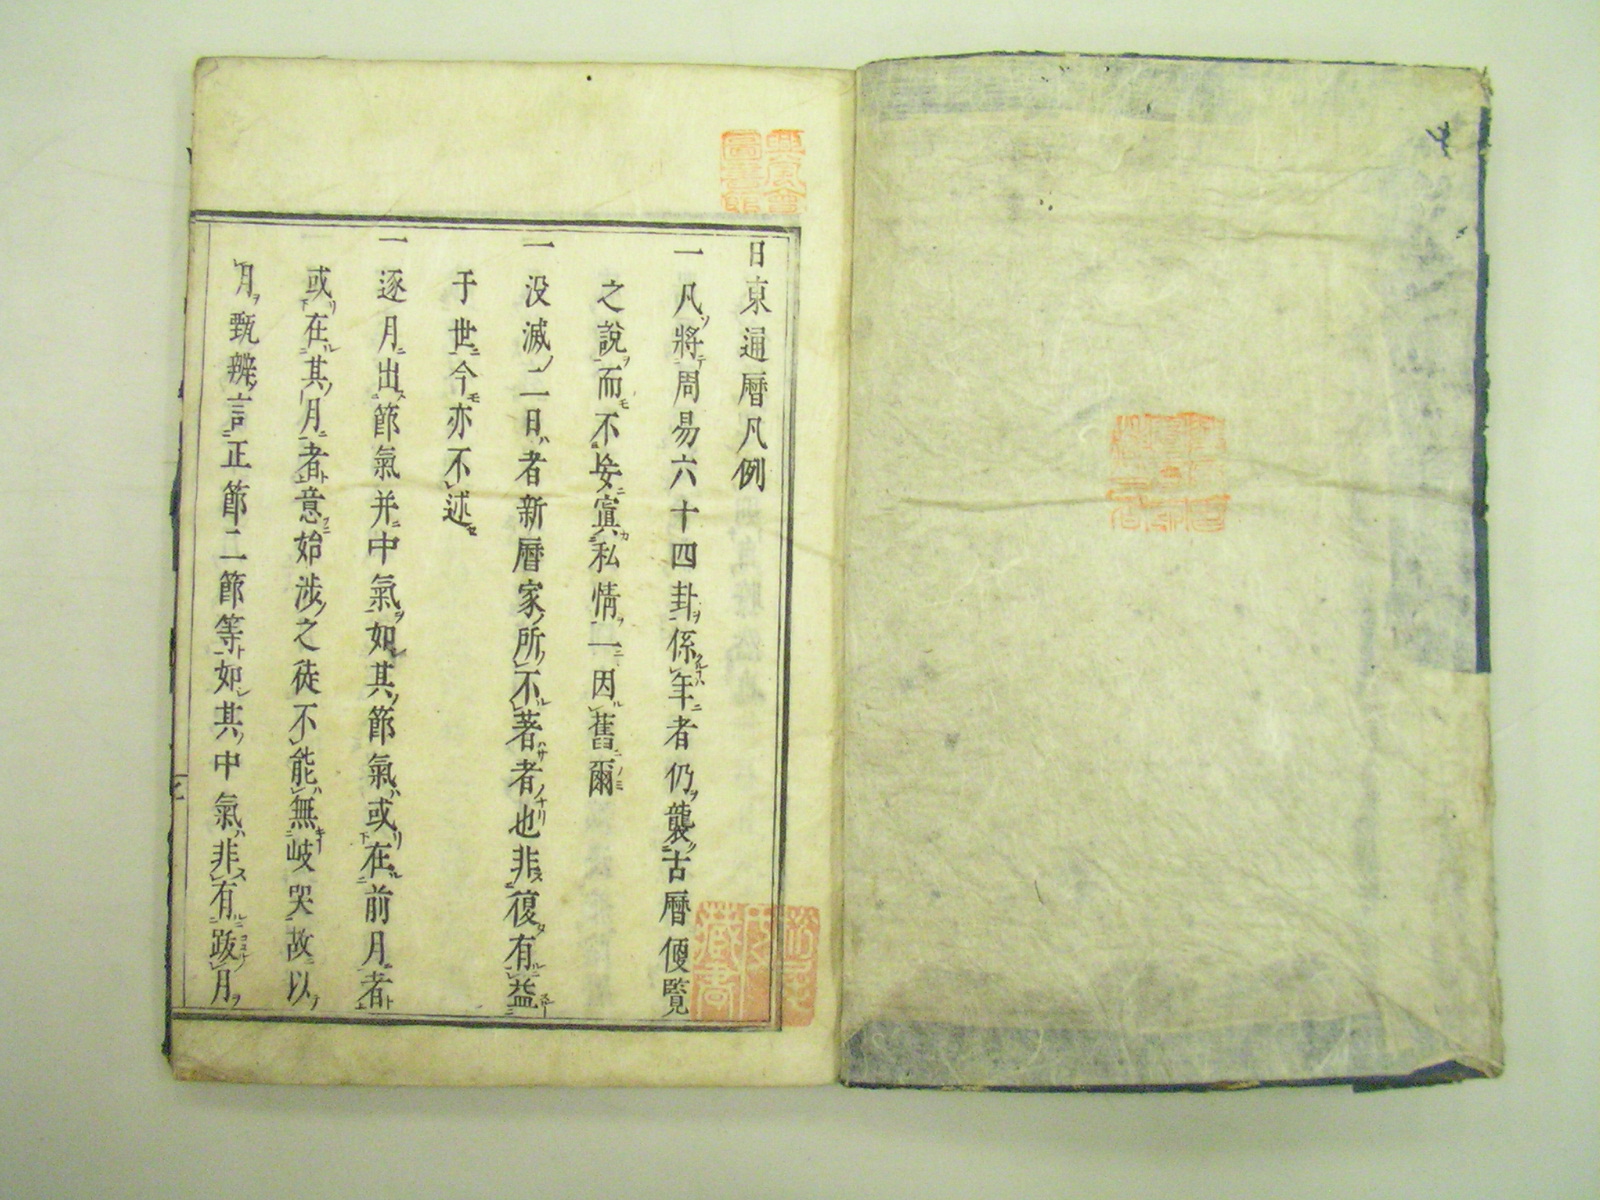 日東通曆凡例
一凡將周易六十四卦係年者仍襲古曆便覧
之說而不妄寘私情一因舊爾
一没滅二日者新曆家所不著者也非復有益
于世今亦不述
一逐月出節氣并中氣如其節氣或在前月者
或在其月者意始涉之徒不能無岐哭故以
月甄辨言正節二節等如其中氣非有跋月